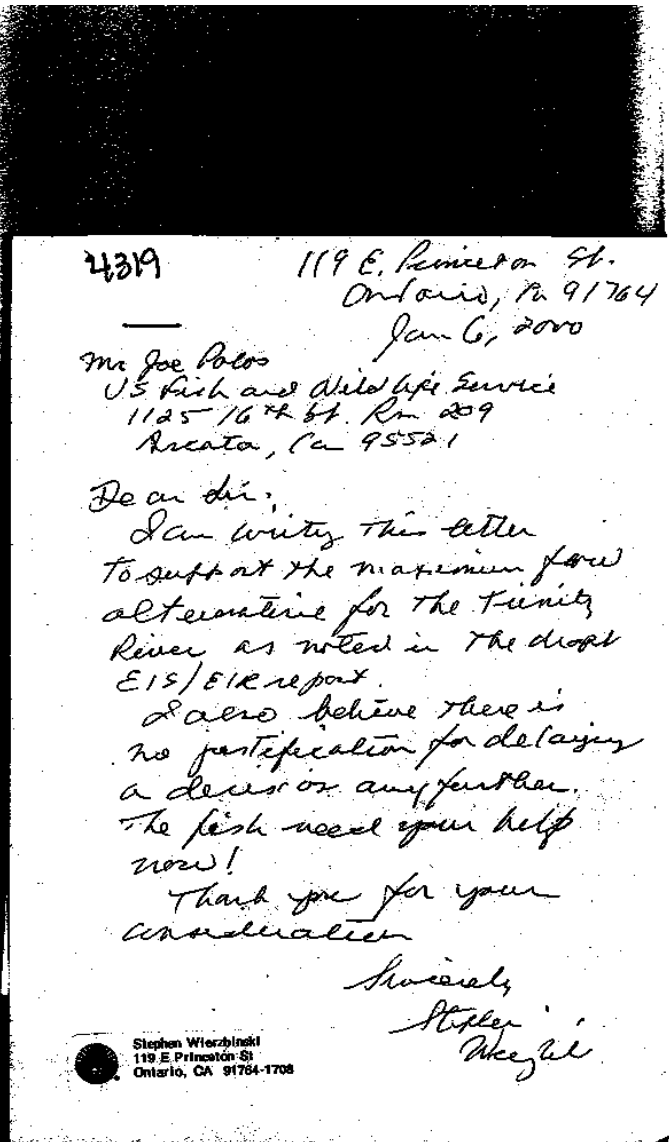 4319
119 E. Princeton St.
Ontario, Ca 91764
Jan 6, 2000
Mr Joe Polos
US Fish and Wildlife Service
1125 16th St. Rm 209
Arcata, Ca 95521
Dear Sir:
I am writing this letter
to support the maximum flow
alternative for the Trinity
River as noted in the draft
EIS/EIR report.
I also believe there is
no justification for delaying
a decision any further.
The fish need your help
now!
Thank you for your
consideration
Sincerely
Stephen
Wierzbinski
Stephen Wierzbinski
119 E Princeton St
Ontario, CA 91764-1708